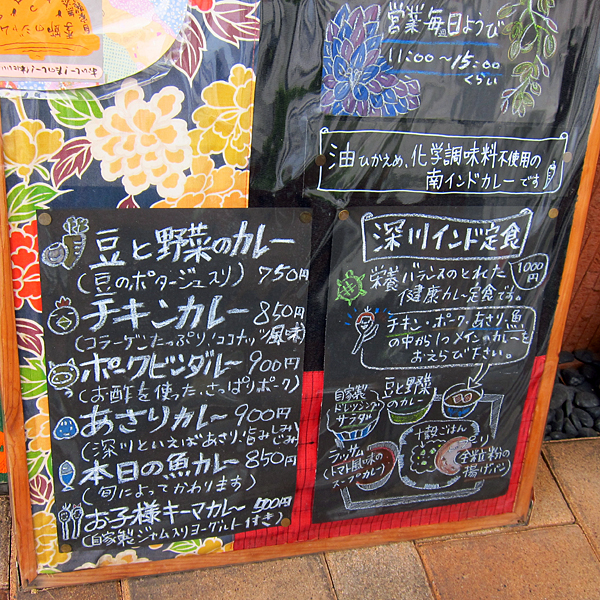 営業・毎日ようび
11:00〜15:00
くらい
油ひかえめ、化学調味料不使用の
南インドカレーです
豆と野菜のカレー
(豆のポタージュスリ) 750円
チキンカレー 850円
(コラーゲンたっぷり/ココナッツ風味)
ポークビンダルー 900円
(お酢を使った、さっぱりポーク)
あさりカレー 900円
(深川といえばあさり、旨みしみじみ)
本日の魚カレー 850円
(旬によってかわります)
お子様キーマカレー 500円
(自家製ジャム入りヨーグルト付き)
深川インド定食
1000円
栄養バランスのとれた
健康カレー定食です。
チキン・ポーク、あさり、魚
の中から1つメインのカレーを
おえらび下さい。
自家製
ドレッシング
サラダ
豆と野菜
のカレー
ラッサム
(トマト風味の
スープカレー)
十穀ごはん
プーリ
全粒粉の
揚げパン